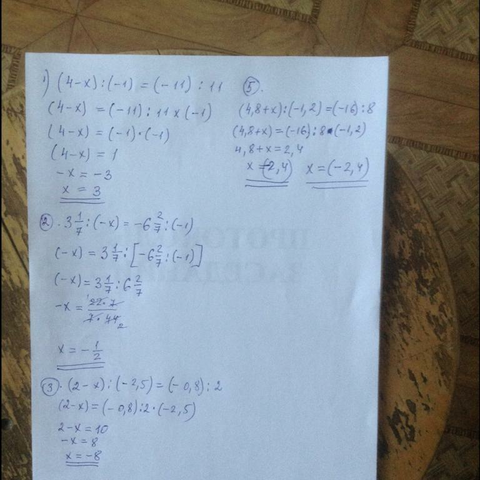 1) (4-x):(-1) = (-11) : 11
(4-x) = (-11) : 11 x (-1)
(4-x) = (-1)·(-1)
(4-x) = 1
-x = -3
x = 3
2. 3 1/7 : (-x) = -6 2/7 : (-1)
(-x) = 3 1/7 : [-6 2/7 : (-1)]
(-x) = 3 1/7 : 6 2/7
-x = 22·7/7·44 2
x = -1/2
3. (2-x) : (-2,5) = (-0,8) : 2
(2-x) = (-0,8) : 2 · (-2,5)
2-x = 10
-x = 8
x = -8
5.
(4,8+x) : (-1,2) = (-16) : 8
(4,8+x) = (-16) : 8 · (-1,2)
4,8+x = 2,4
x = (-2,4) x = (-2,4)